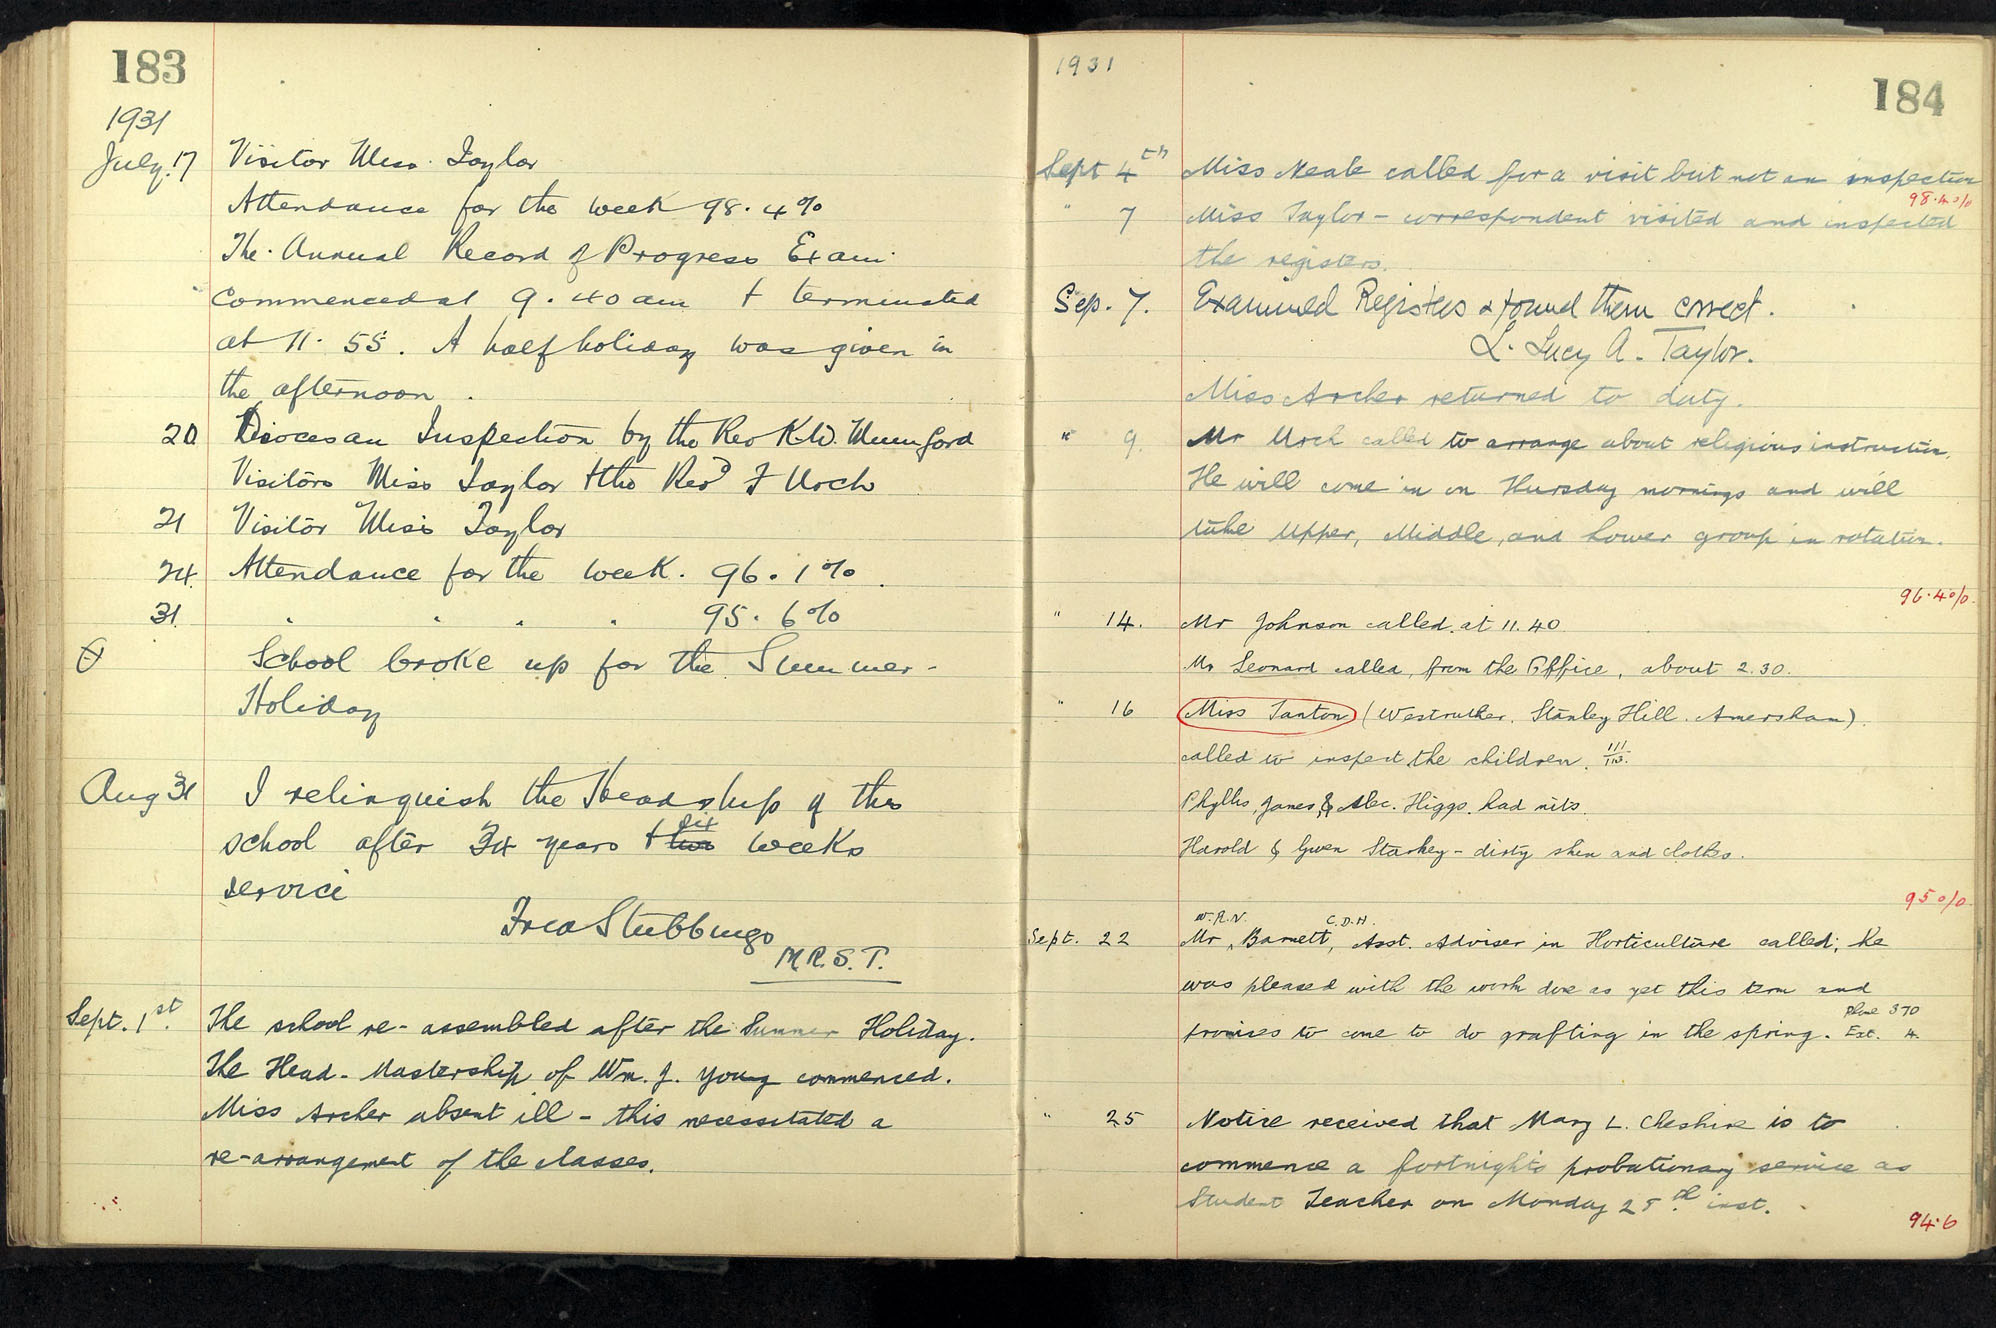 183
1931
July. 17 Visitor Miss Taylor
Attendance for the week 98.4%
The Annual Record of Progress Exam
commenced at 9.40 am & terminated
at 11.55. A half holiday was given in
the afternoon.
20 Diocesan Inspection by the Rev K.W. Mumford
Visitors Miss Taylor & the Revd F Urch
21 Visitor Miss Taylor
24 Attendance for the week. 96.1%.
31 " " " " 95.6%
School broke up for the Summer-
Holiday
Aug 31 I relinquish the Headship of this
school after 34 years & two six weeks
service
Fred Stubbings
M.R.S.T.
Sept. 1st. The school re-assembled after the Summer Holiday.
The Head-Mastership of Wm. J. Young commenced.
Miss Archer absent ill - this necessitated a
re-arrangement of the classes.
184
1931
Sept 4th Miss Neale called for a visit but not an inspection
98.4%
" 7 Miss Taylor - correspondent visited and inspected
the registers.
Sep. 7. Examined Registers & found them correct.
L. Lucy A. Taylor.
Miss Archer returned to duty.
" 9. Mr Urch called to arrange about religious instruction.
He will come in on Thursday mornings and will
take Upper, Middle, and Lower group in rotation.
96.4%
" 14. Mr Johnson called at 11.40
Mr Leonard called, from the Office, about 2.30.
" 16 Miss Tanton (Westruther. Stanley Hill. Amersham).
called to inspect the children. 111/113.
Phyllis, James & Alec. Higgs had nits.
Harold & Gwen Starkey - dirty skin and clothes.
95%
W.R.N. C.D.H.
Sept. 22 Mr Barnett, Asst. Adviser in Horticulture called; he
was pleased with the work done as yet this term and
promises to come to do grafting in the spring. Phone 370 Ext. 4.
" 25 Notice received that Mary L. Cheshire is to
commence a fortnight's probationary service as
Student Teacher on Monday 28th inst.
94.6